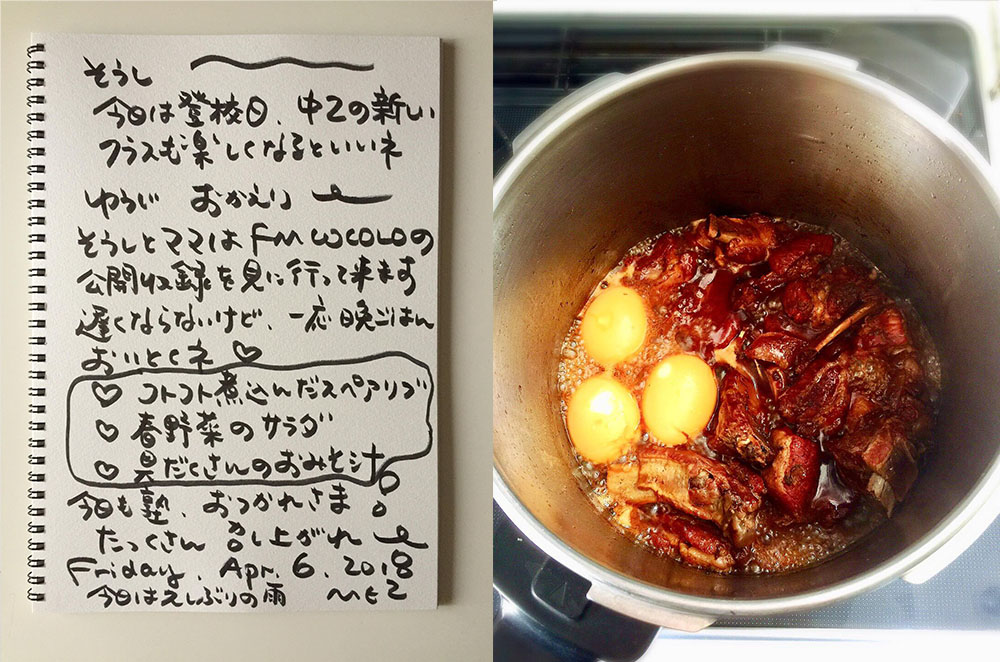 そうし
今日は登校日、中2の新しい
クラスも楽しくなるといいネ
ゆうじ おかえり
そうしとママはFM COCOLOの
公開収録を見に行って来ます
遅くならないけど、一応晩ごはん
おいとくネ ♡
♡ コトコト煮込んだスペアリブ
♡ 春野菜のサラダ
♡ 具だくさんのおみそ汁
今日も塾、おつかれさま
たっくさん 召し上がれ
Friday, Apr. 6, 2018
今日は久しぶりの雨